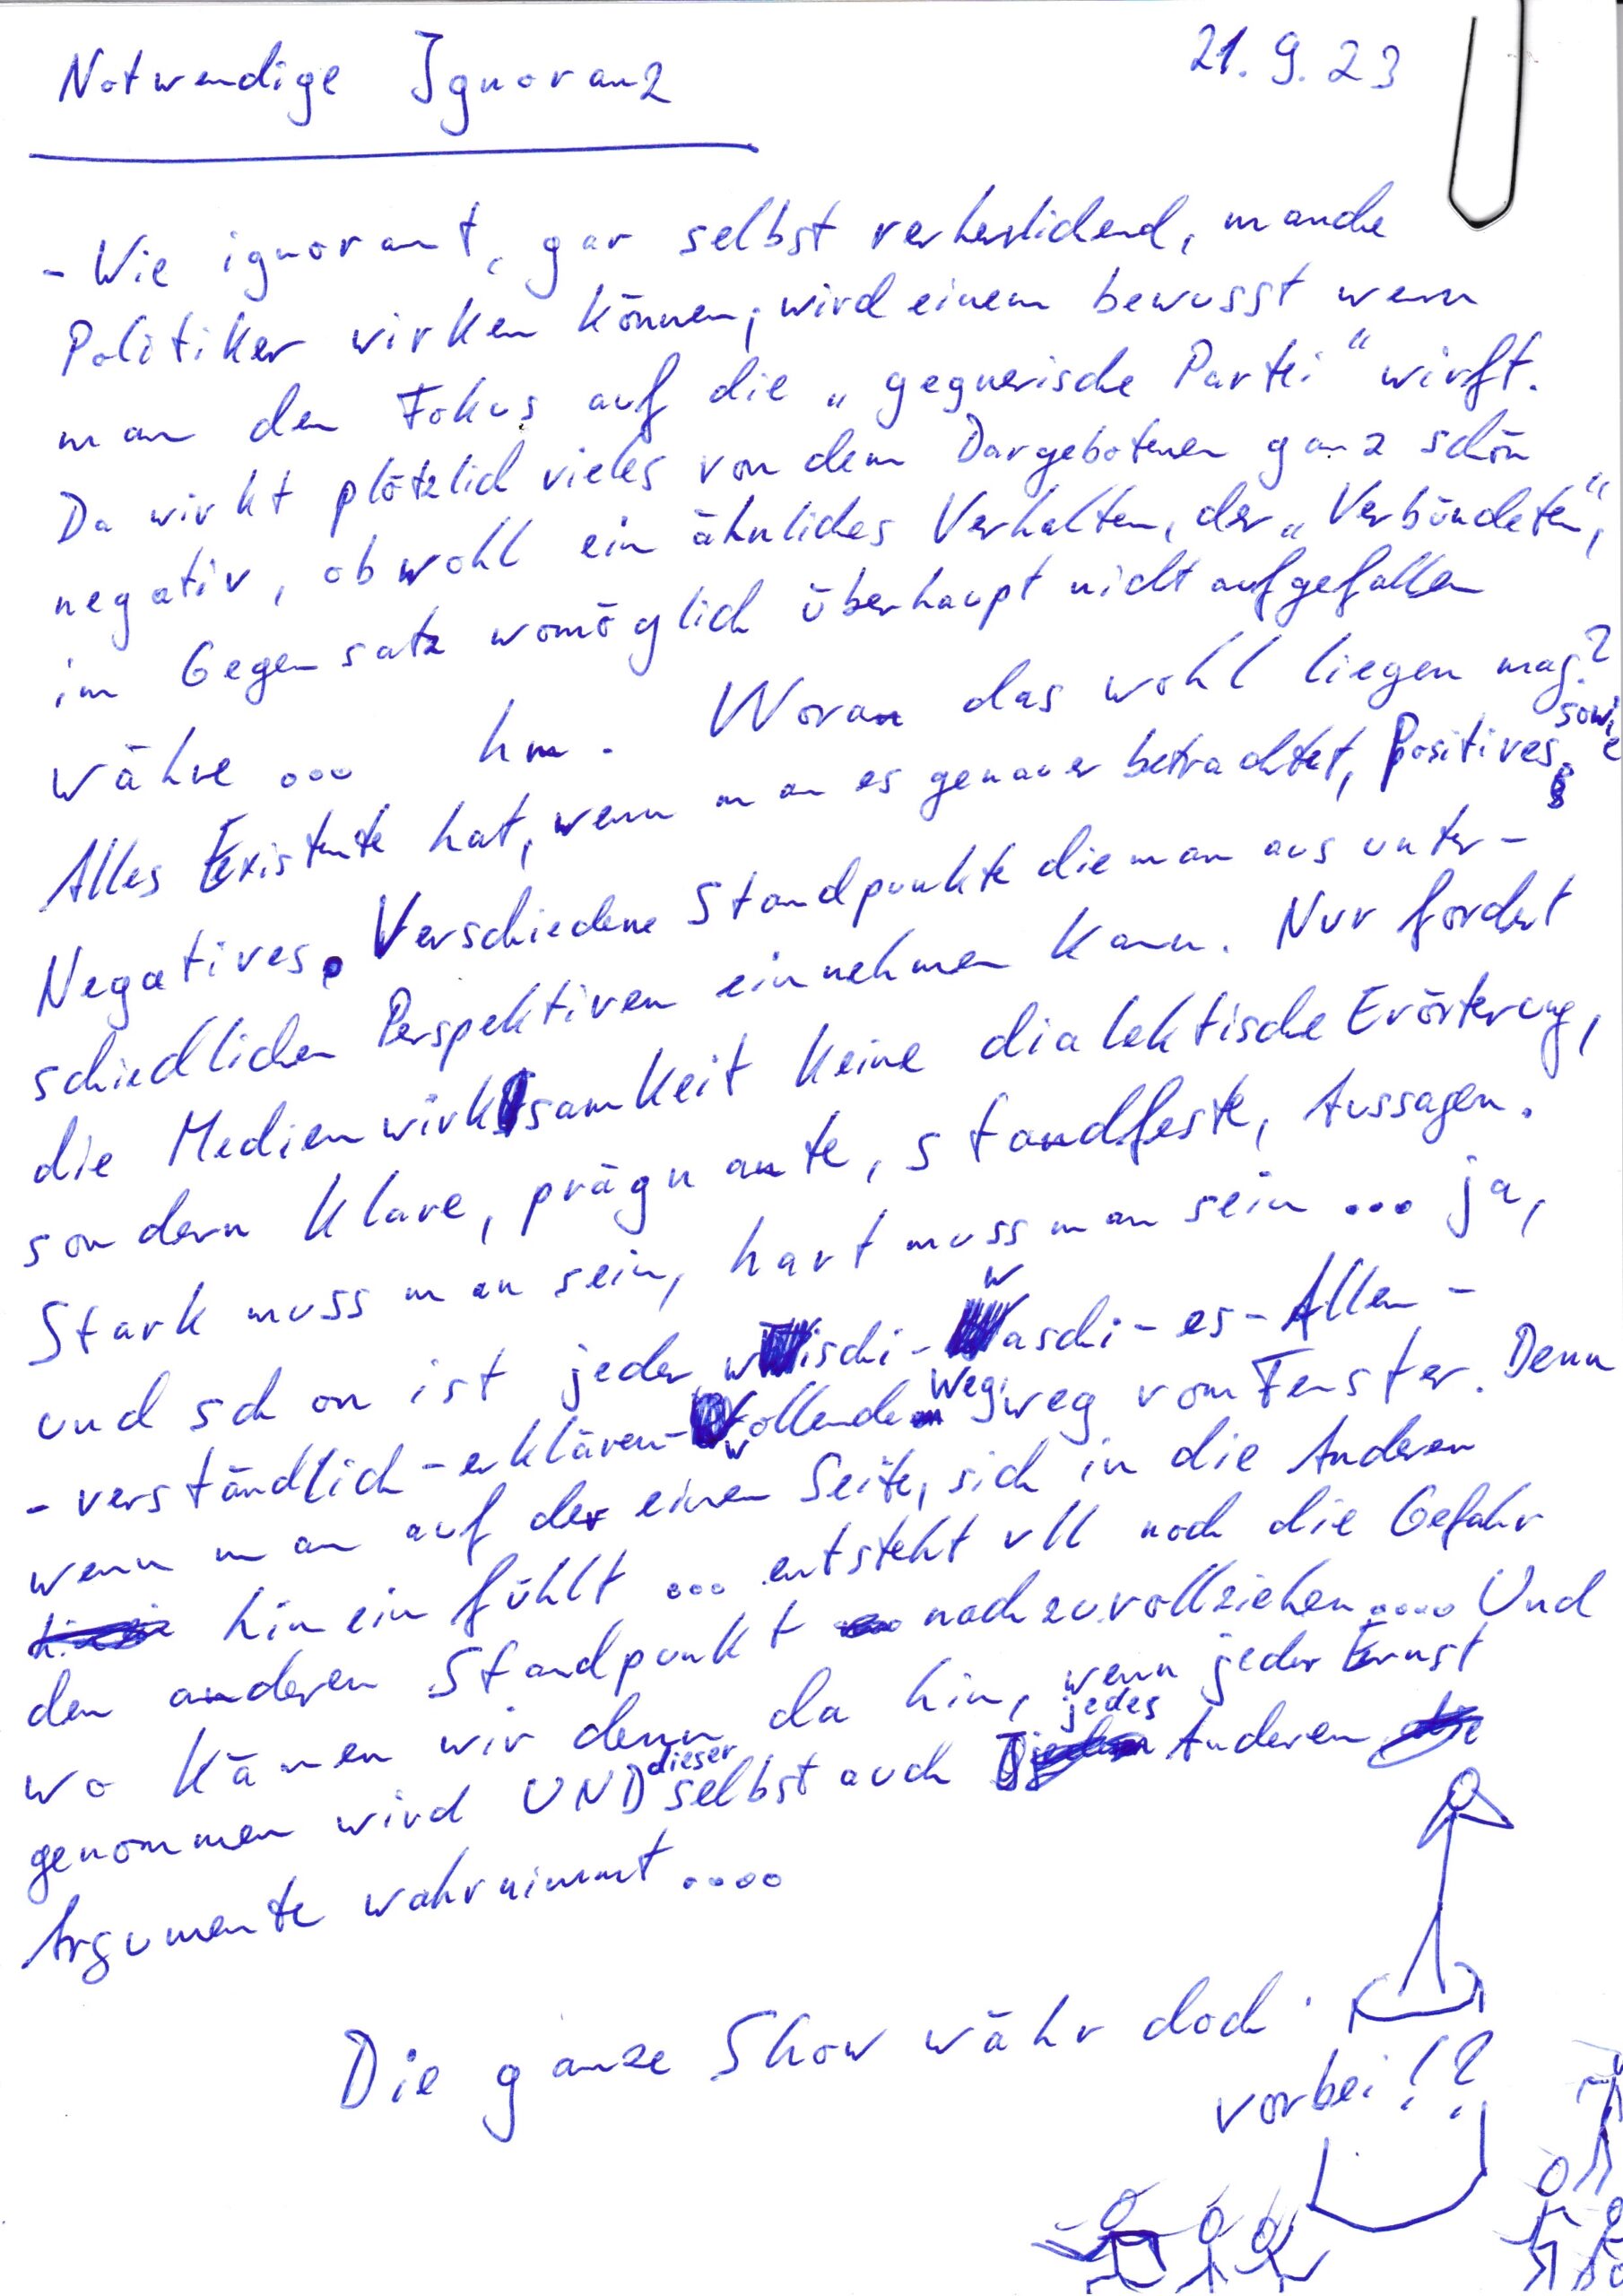 Notwendige Ignoranz 21.9.23
- Wie ignorant, gar selbst verherlichend, manche
Politiker wirken können, wird einem bewusst wenn
man den Fokus auf die „gegnerische Partei“ wirft.
Da wirkt plötzlich vieles von dem Dargebotenen ganz schön
negativ, obwohl ein ähnliches Verhalten, der „Verbündeten“,
im Gegensatz womöglich überhaupt nicht aufgefallen
währe ... hm. Woran das wohl liegen mag?
Alles Existente hat, wenn man es genauer betrachtet, Positives sowie
Negatives. Verschiedene Standpunkte die man aus unter-
schiedlichen Perspektiven einnehmen kann. Nur fordert
die Medienwirksamkeit keine dialektische Erörterung,
sondern klare, prägnante, standfeste, Aussagen.
Stark muss man sein, hart muss man sein ... ja,
und schon ist jeder wischi-waschi-es-Allen-
-verständlich-erklären-wollende Weg weg vom Fenster. Denn
wenn man auf der einen Seite, sich in die Anderen
hinein fühlt ... entsteht vll noch die Gefahr
den anderen Standpunkt nachzuvollziehen.... Und
wo kämen wir denn da hin, wenn jeder Ernst
genommen wird UND dieser selbst auch jedes Anderen
Argumente wahrnimmt ....
Die ganze Show währ doch
vorbei!?